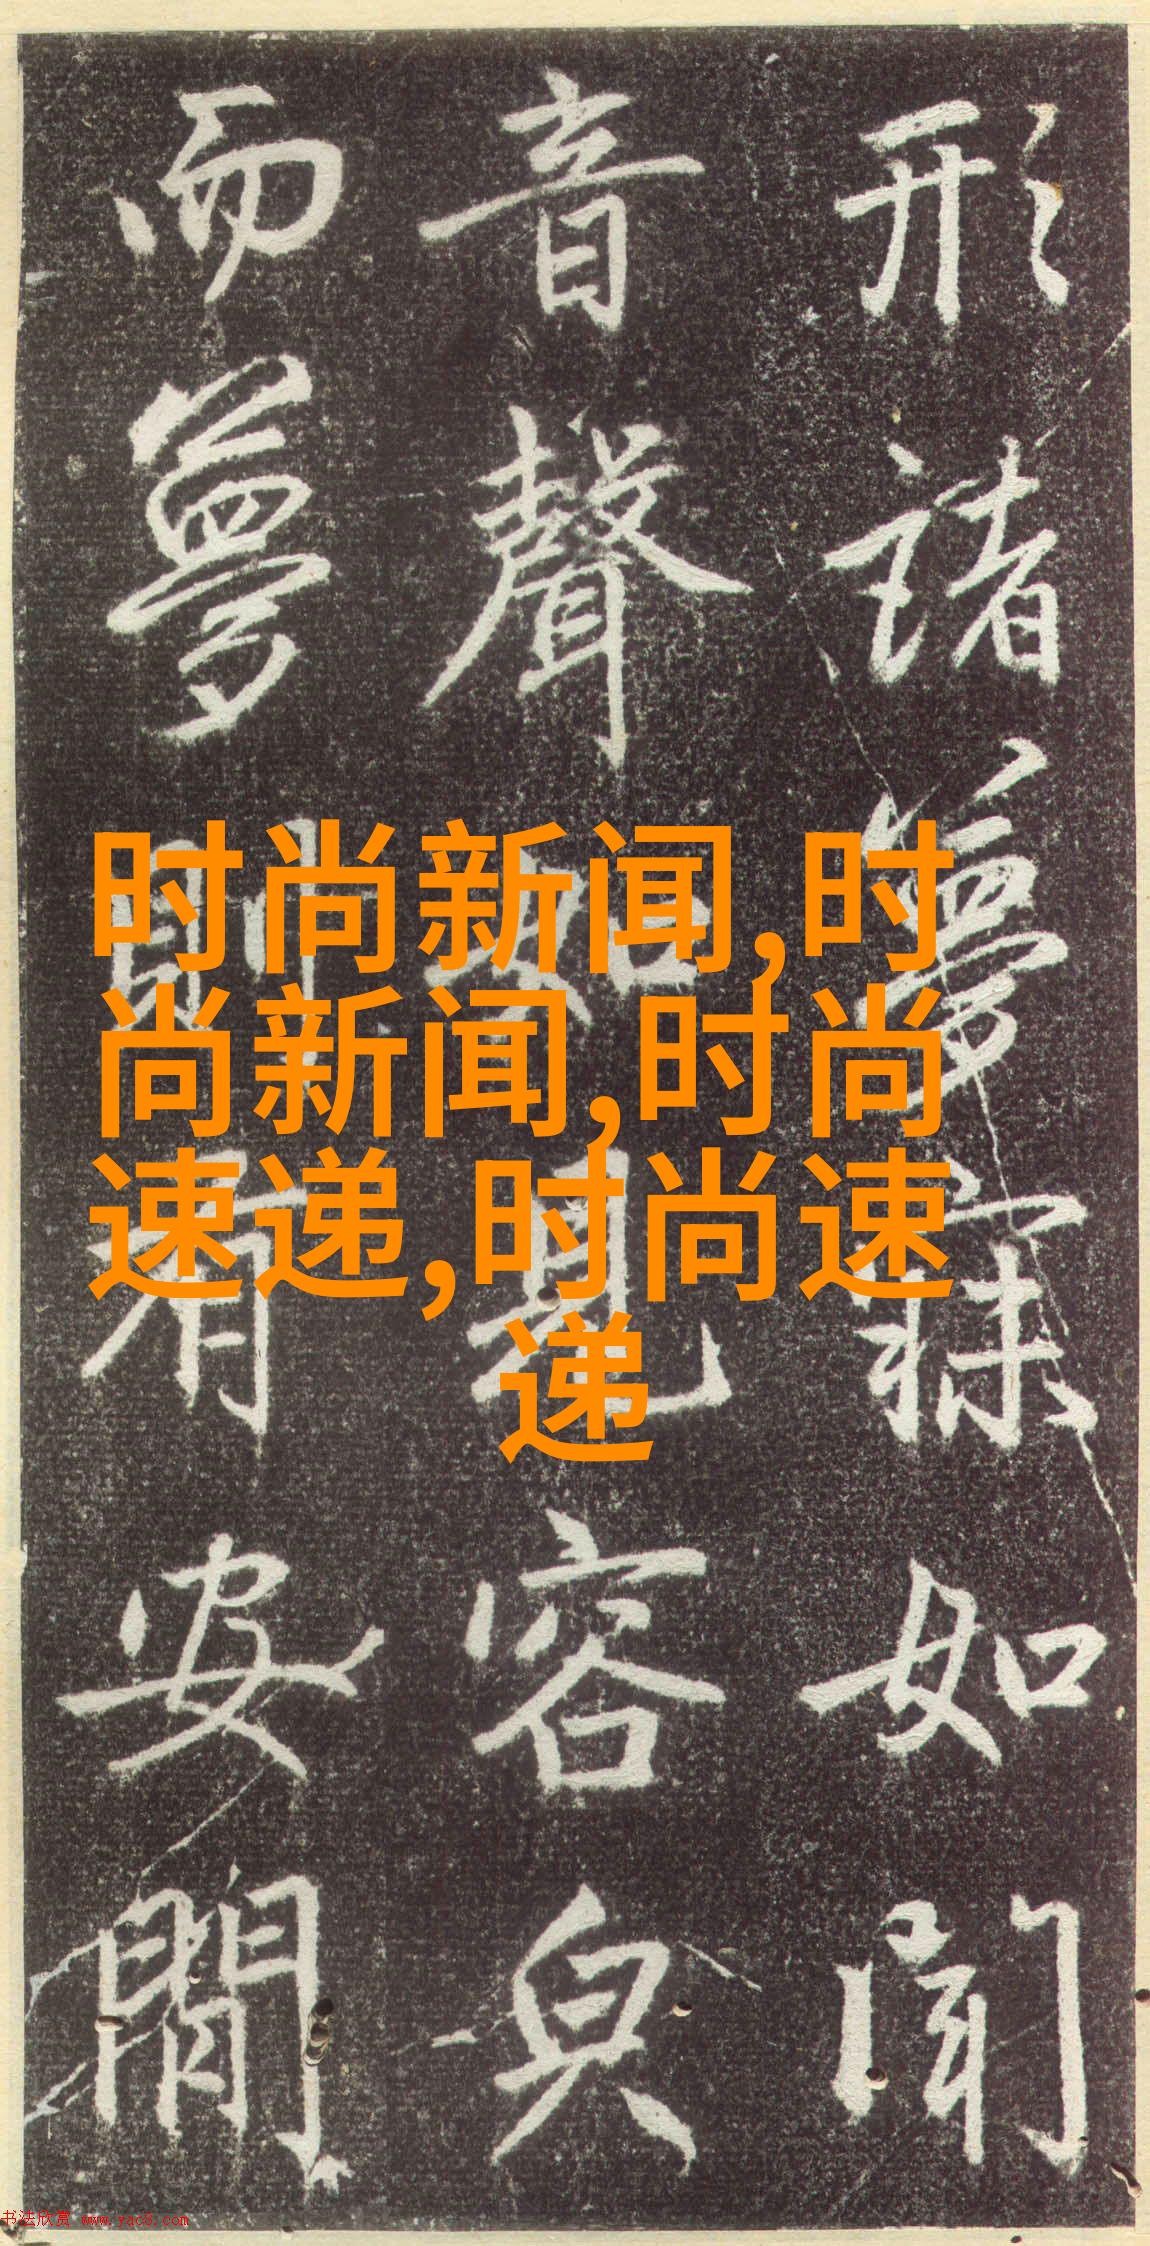 形諸夢寐如聞
音聲如見容皃
而夢則有安閒
时尚新闻,时
尚新闻,时尚
速递,时尚速
递
书法欣赏 www.yac8.com